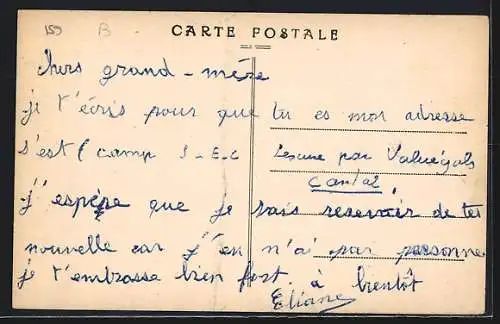 159 B
CARTE POSTALE
chers grand-mére
je t'écris pour que tu es mon adresse
s'est (camp J-E-C Lescure par Valuéjols
Cantal
j'espére que je vais resevoir de tes
nouvelle car j'en n'ai par personne
je t'embrasse bien fort. à bientôt
Eliane